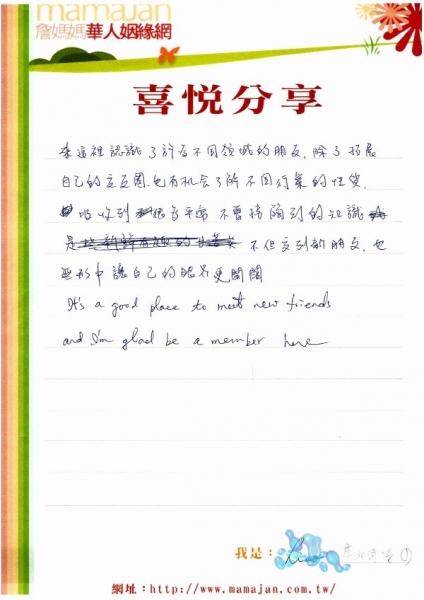 mamajan
詹媽媽華人姻緣網
喜悅分享
來這裡認識了許多不同領域的朋友,除了拓展
自己的交友圈.也有机会了解不同行業的性質.
吸收到很多平常不會接觸到的知識
不但交到新朋友,也
無形中讓自己的眼界更開闊
It's a good place to meet new friends
and I'm glad be a member here
我是:
網址:http://www.mamajan.com.tw/